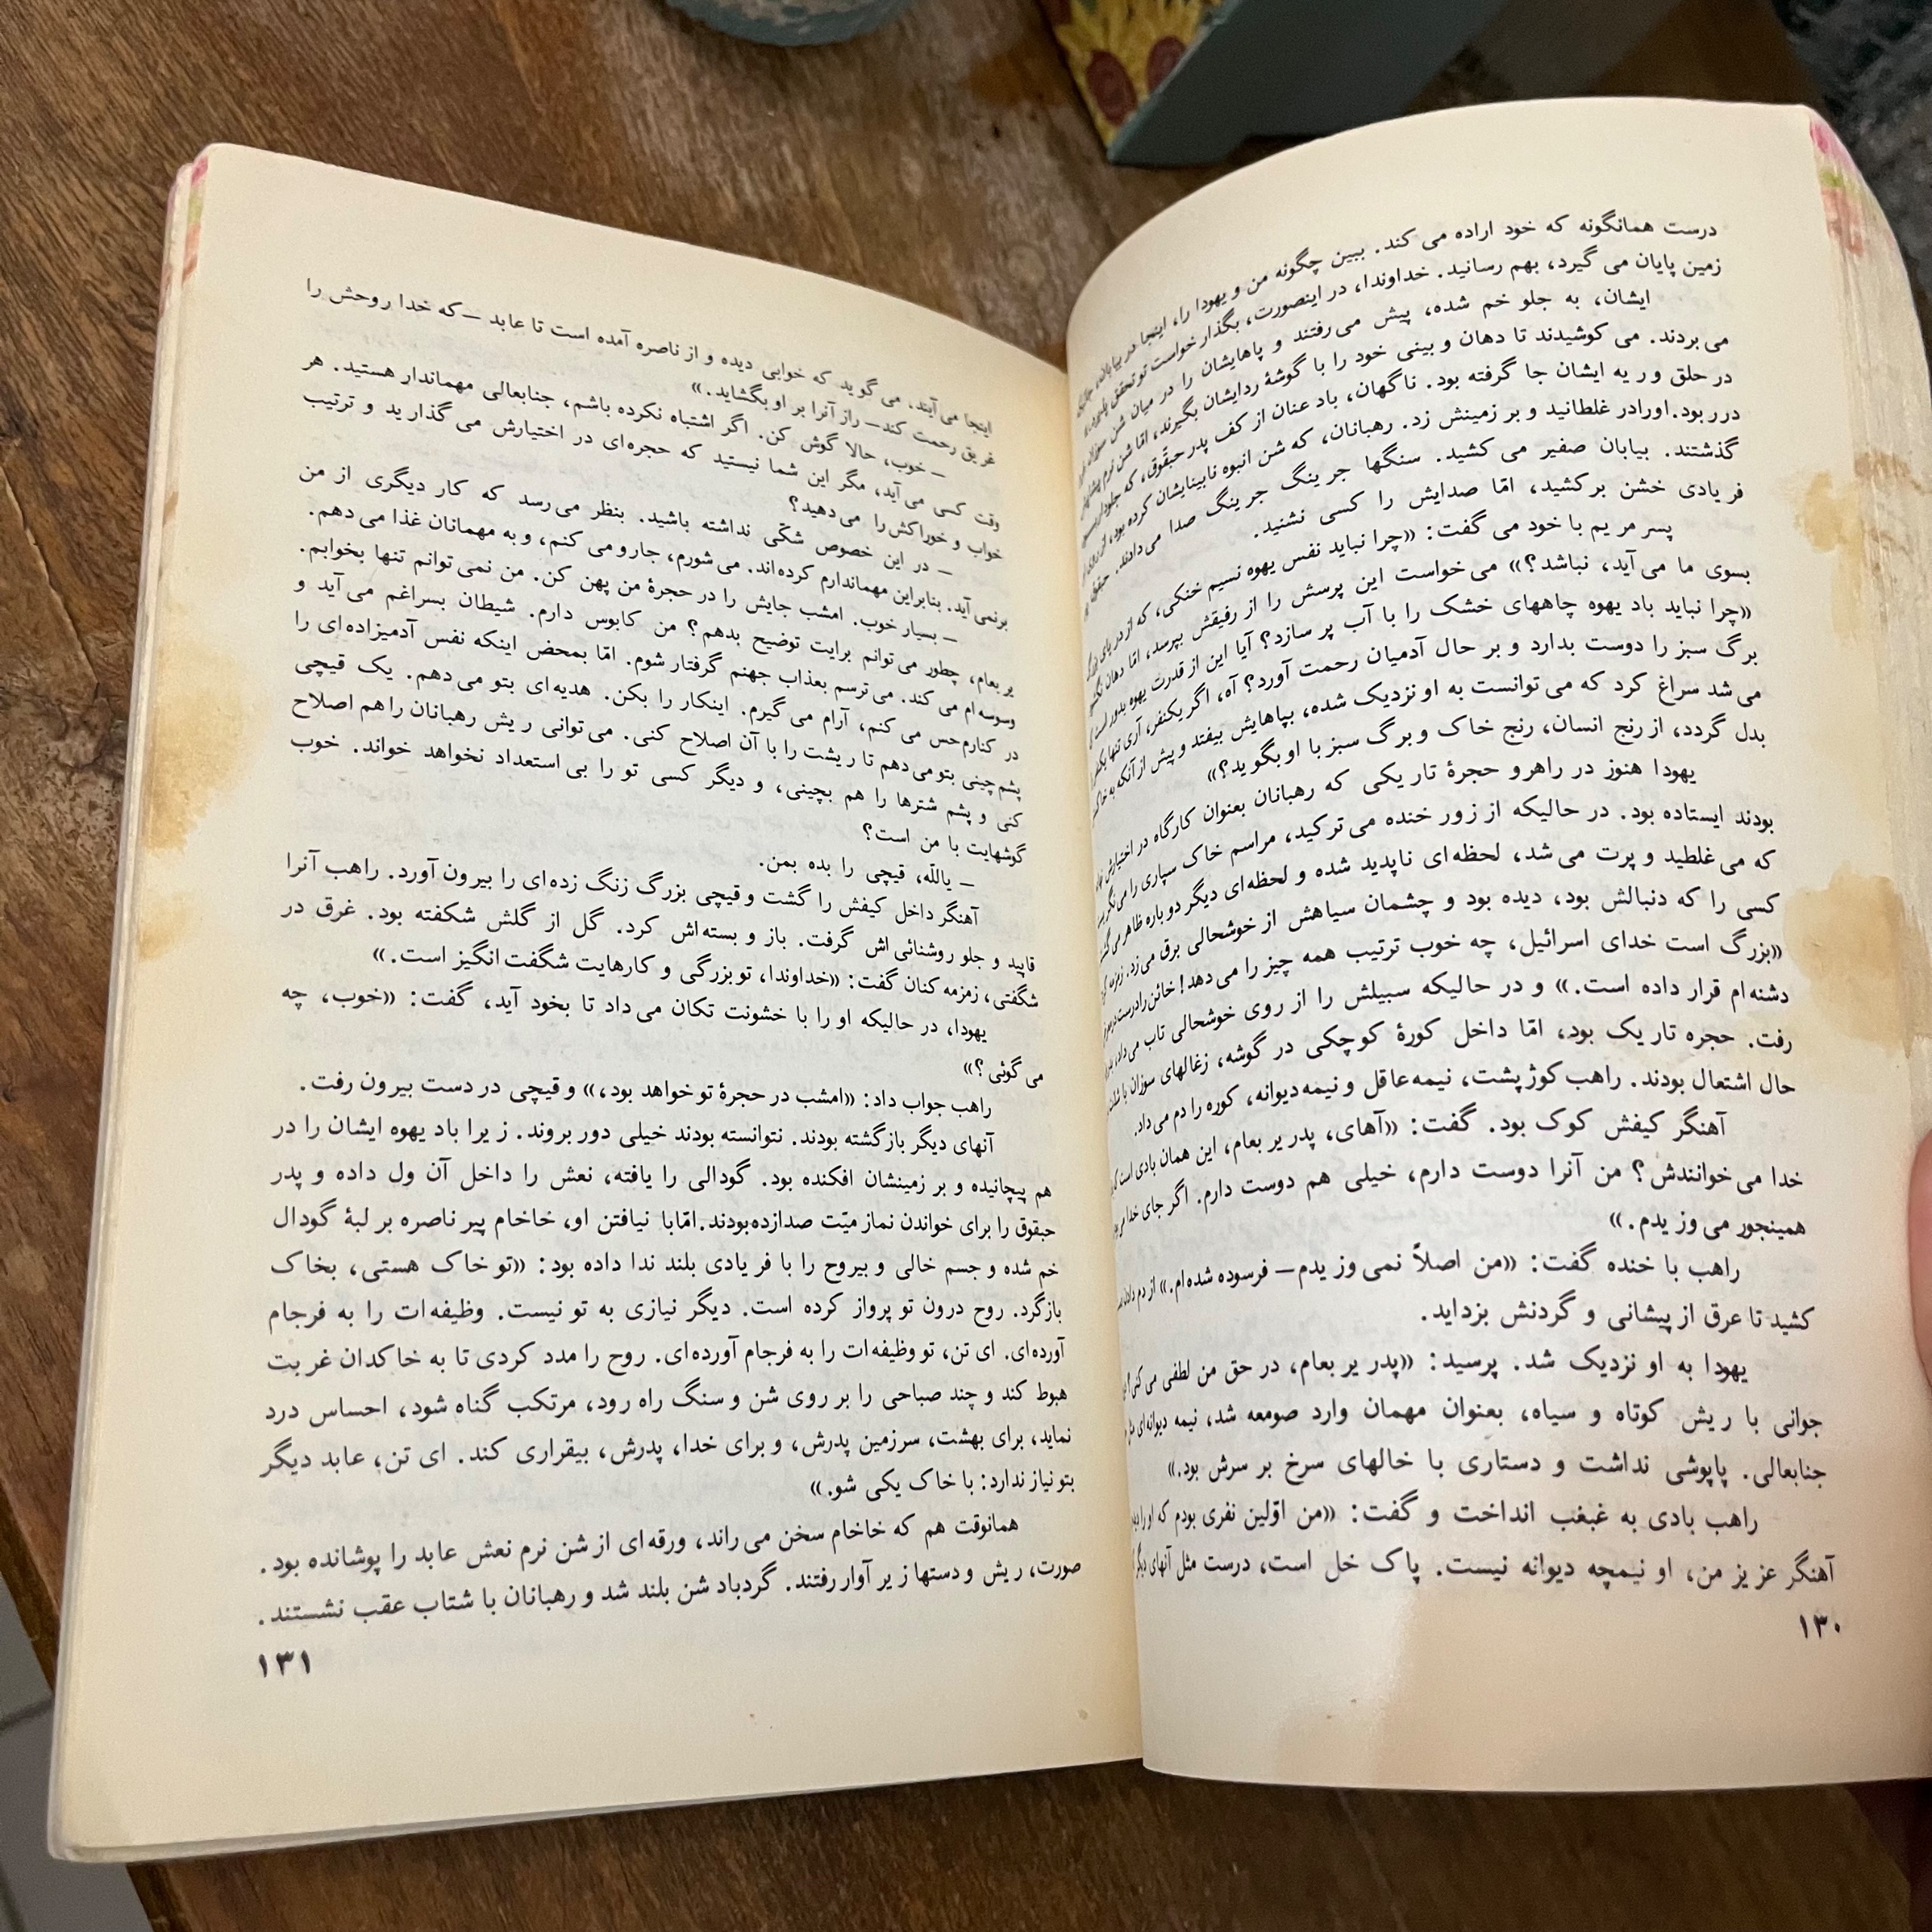 درست همانگونه که خود اراده می کند. ببین چگونه من و یهودا را، اینجا در بیابان،
زمین پایان می گیرد، بهم رسانید. خداوندا، در اینصورت، بگذار خواست تو تحقق
ایشان، به جلو خم شده، پیش می رفتند و پاهایشان را در میان شن
می بردند. می کوشیدند تا دهان و بینی خود را با گوشهٔ ردایشان بگیرند، امّا شن نرم
در حلق و ریه ایشان جا گرفته بود. ناگهان، باد عنان از کف پدر حبقّوق، که
در ربود. اورادر غلطانید و بر زمینش زد. رهبانان، که شن انبوه نابینایشان کرده بود، از روی
گذشتند. بیابان صفیر می کشید. سنگها جرینگ جرینگ صدا می دادند. حبقوق
فریادی خشن برکشید، امّا صدایش را کسی نشنید.
پسر مریم با خود می گفت: «چرا نباید نفس یهوه نسیم خنکی، که از دریای بزرگ
بسوی ما می آید، نباشد؟» می خواست این پرسش را از رفیقش بپرسد، امّا دهان
«چرا نباید باد یهوه چاههای خشک را با آب پر سازد؟ آیا این از قدرت یهوه بدور است که
برگ سبز را دوست بدارد و بر حال آدمیان رحمت آورد؟ آه، اگر یکنفر، آری تنها یکنفر
می شد سراغ کرد که می توانست به او نزدیک شده، بپاهایش بیفتد و پیش از آنکه به خاکستر
بدل گردد، از رنج انسان، رنج خاک و برگ سبز با او بگوید؟»
یهودا هنوز در راهرو حجرهٔ تاریکی که رهبانان بعنوان کارگاه در اختیارش
بودند ایستاده بود. در حالیکه از زور خنده می ترکید، مراسم خاک سپاری را
که می غلطید و پرت می شد، لحظه ای ناپدید شده و لحظه ای دیگر دوباره ظاهر می
کسی را که دنبالش بود، دیده بود و چشمان سیاهش از خوشحالی برق می زد. زمزمه
«بزرگ است خدای اسرائیل، چه خوب ترتیب همه چیز را می دهد! خائن را درست
دشنه ام قرار داده است.» و در حالیکه سبیلش را از روی خوشحالی تاب می داد،
رفت. حجره تاریک بود، امّا داخل کورهٔ کوچکی در گوشه، زغالهای سوزان با
حال اشتعال بودند. راهب کوژپشت، نیمه عاقل و نیمه دیوانه، کوره را دم می داد.
آهنگر کیفش کوک بود. گفت: «آهای، پدر یربعام، این همان بادی است که
خدا می خوانندش؟ من آنرا دوست دارم، خیلی هم دوست دارم. اگر جای خدا
همینجور می وزیدم.»
راهب با خنده گفت: «من اصلاً نمی وزیدم— فرسوده شده ام.» از دم دادن
کشید تا عرق از پیشانی و گردنش بزداید.
یهودا به او نزدیک شد. پرسید: «پدر یربعام، در حق من لطفی می کنی؟
جوانی با ریش کوتاه و سیاه، بعنوان مهمان وارد صومعه شد، نیمه دیوانه ای مثل
جنابعالی. پاپوشی نداشت و دستاری با خالهای سرخ بر سرش بود.»
راهب بادی به غبغب انداخت و گفت: «من اوّلین نفری بودم که او را
آهنگر عزیز من، او نیمچه دیوانه نیست. پاک خل است، درست مثل آنهای دیگر
۱۳۰
اینجا می آیند. می گوید که خوابی دیده و از ناصره آمده است تا عابد —که خدا روحش را
غریق رحمت کند— راز آنرا بر او بگشاید.»
— خوب، حالا گوش کن. اگر اشتباه نکرده باشم، جنابعالی مهماندار هستید. هر
وقت کسی می آید، مگر این شما نیستید که حجره ای در اختیارش می گذارید و ترتیب
خواب و خوراکش را می دهید؟
— در این خصوص شکّی نداشته باشید. بنظر می رسد که کار دیگری از من
برنمی آید. بنابراین مهماندارم کرده اند. می شورم، جارو می کنم، و به مهمانان غذا می دهم.
— بسیار خوب. امشب جایش را در حجرهٔ من پهن کن. من نمی توانم تنها بخوابم.
یربعام، چطور می توانم برایت توضیح بدهم؟ من کابوس دارم. شیطان بسراغم می آید و
وسوسه ام می کند. می ترسم بعذاب جهنم گرفتار شوم. امّا بمحض اینکه نفس آدمیزاده ای را
در کنارم حس می کنم، آرام می گیرم. اینکار را بکن. هدیه ای بتو می دهم. یک قیچی
پشم چینی بتو می دهم تا ریشت را با آن اصلاح کنی. می توانی ریش رهبانان را هم اصلاح
کنی و پشم شترها را هم بچینی، و دیگر کسی تو را بی استعداد نخواهد خواند. خوب
گوشهایت با من است؟
— یالله، قیچی را بده بمن.
آهنگر داخل کیفش را گشت و قیچی بزرگ زنگ زده ای را بیرون آورد. راهب آنرا
قاپید و جلو روشنائی اش گرفت. باز و بسته اش کرد. گل از گلش شکفته بود. غرق در
شگفتی، زمزمه کنان گفت: «خداوندا، تو بزرگی و کارهایت شگفت انگیز است.»
یهودا، در حالیکه او را با خشونت تکان می داد تا بخود آید، گفت: «خوب، چه
می گوئی؟»
راهب جواب داد: «امشب در حجرهٔ تو خواهد بود،» و قیچی در دست بیرون رفت.
آنهای دیگر بازگشته بودند. نتوانسته بودند خیلی دور بروند. زیرا باد یهوه ایشان را در
هم پیچانیده و بر زمینشان افکنده بود. گودالی را یافته، نعش را داخل آن ول داده و پدر
حبقوق را برای خواندن نماز میّت صدا زده بودند. امّا با نیافتن او، خاخام پیر ناصره بر لبهٔ گودال
خم شده و جسم خالی و بیروح را با فریادی بلند ندا داده بود: «تو خاک هستی، بخاک
بازگرد. روح درون تو پرواز کرده است. دیگر نیازی به تو نیست. وظیفه ات را به فرجام
آورده ای. ای تن، تو وظیفه ات را به فرجام آورده ای. روح را مدد کردی تا به خاکدان غربت
هبوط کند و چند صباحی را بر روی شن و سنگ راه رود، مرتکب گناه شود، احساس درد
نماید، برای بهشت، سرزمین پدرش، و برای خدا، پدرش، بیقراری کند. ای تن، عابد دیگر
بتو نیاز ندارد: با خاک یکی شو.»
همانوقت هم که خاخام سخن می راند، ورقه ای از شن نرم نعش عابد را پوشانده بود.
صورت، ریش و دستها زیر آوار رفتند. گردباد شن بلند شد و رهبانان با شتاب عقب نشستند.
۱۳۱